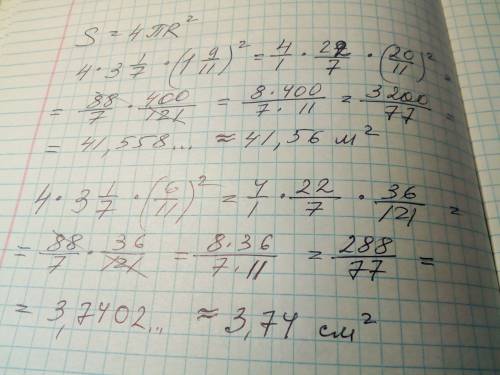 S = 4πR²
4 · 3 1/7 · (1 9/11)² = 4/1 · 22/7 · (20/11)² =
= 88/7 · 400/121 = 8·400/7·11 = 3200/77 =
= 41,558... ≈ 41,56 м²
4 · 3 1/7 · (6/11)² = 4/1 · 22/7 · 36/121 =
= 88/7 · 36/121 = 8·36/7·11 = 288/77 =
= 3,7402.. ≈ 3,74 см²